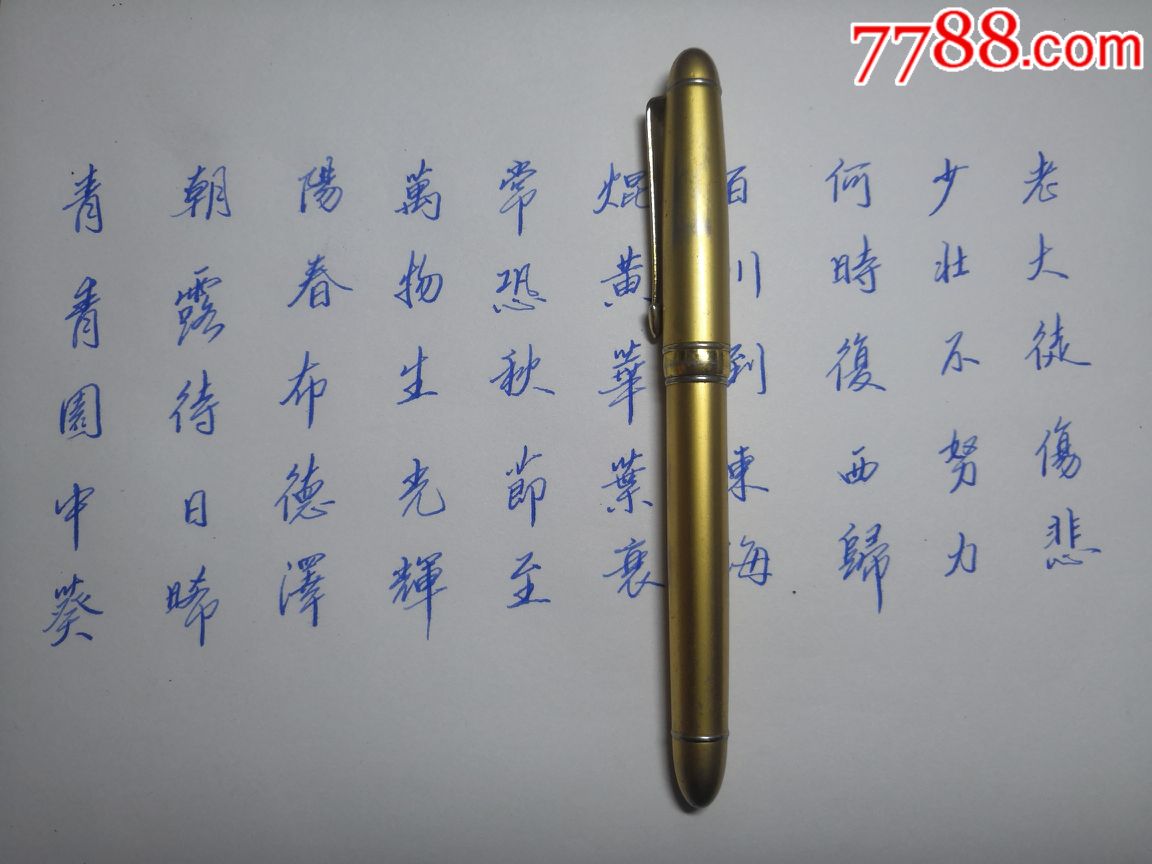 7788.com
青青園中葵
朝露待日晞
陽春布德澤
萬物生光輝
常恐秋節至
焜黃華葉衰
百川到東海
何時復西歸
少壯不努力
老大徒傷悲